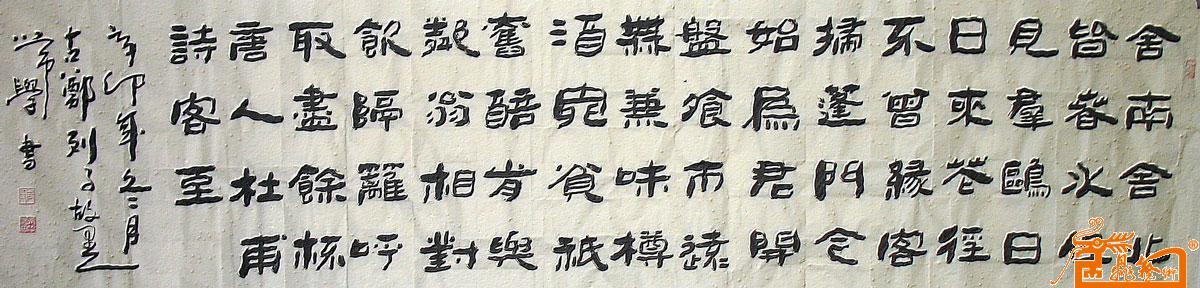 舍南舍北
皆春水但
見羣鷗日
日來花徑
不曾緣客
掃蓬門今
始爲君開
盤飧市遠
無兼味樽
酒家貧祇
舊醅肯與
鄰翁相對
飲隔籬呼
取盡餘杯
唐人杜甫
詩客至
辛卯年冬月
古鄭列子故里
學書